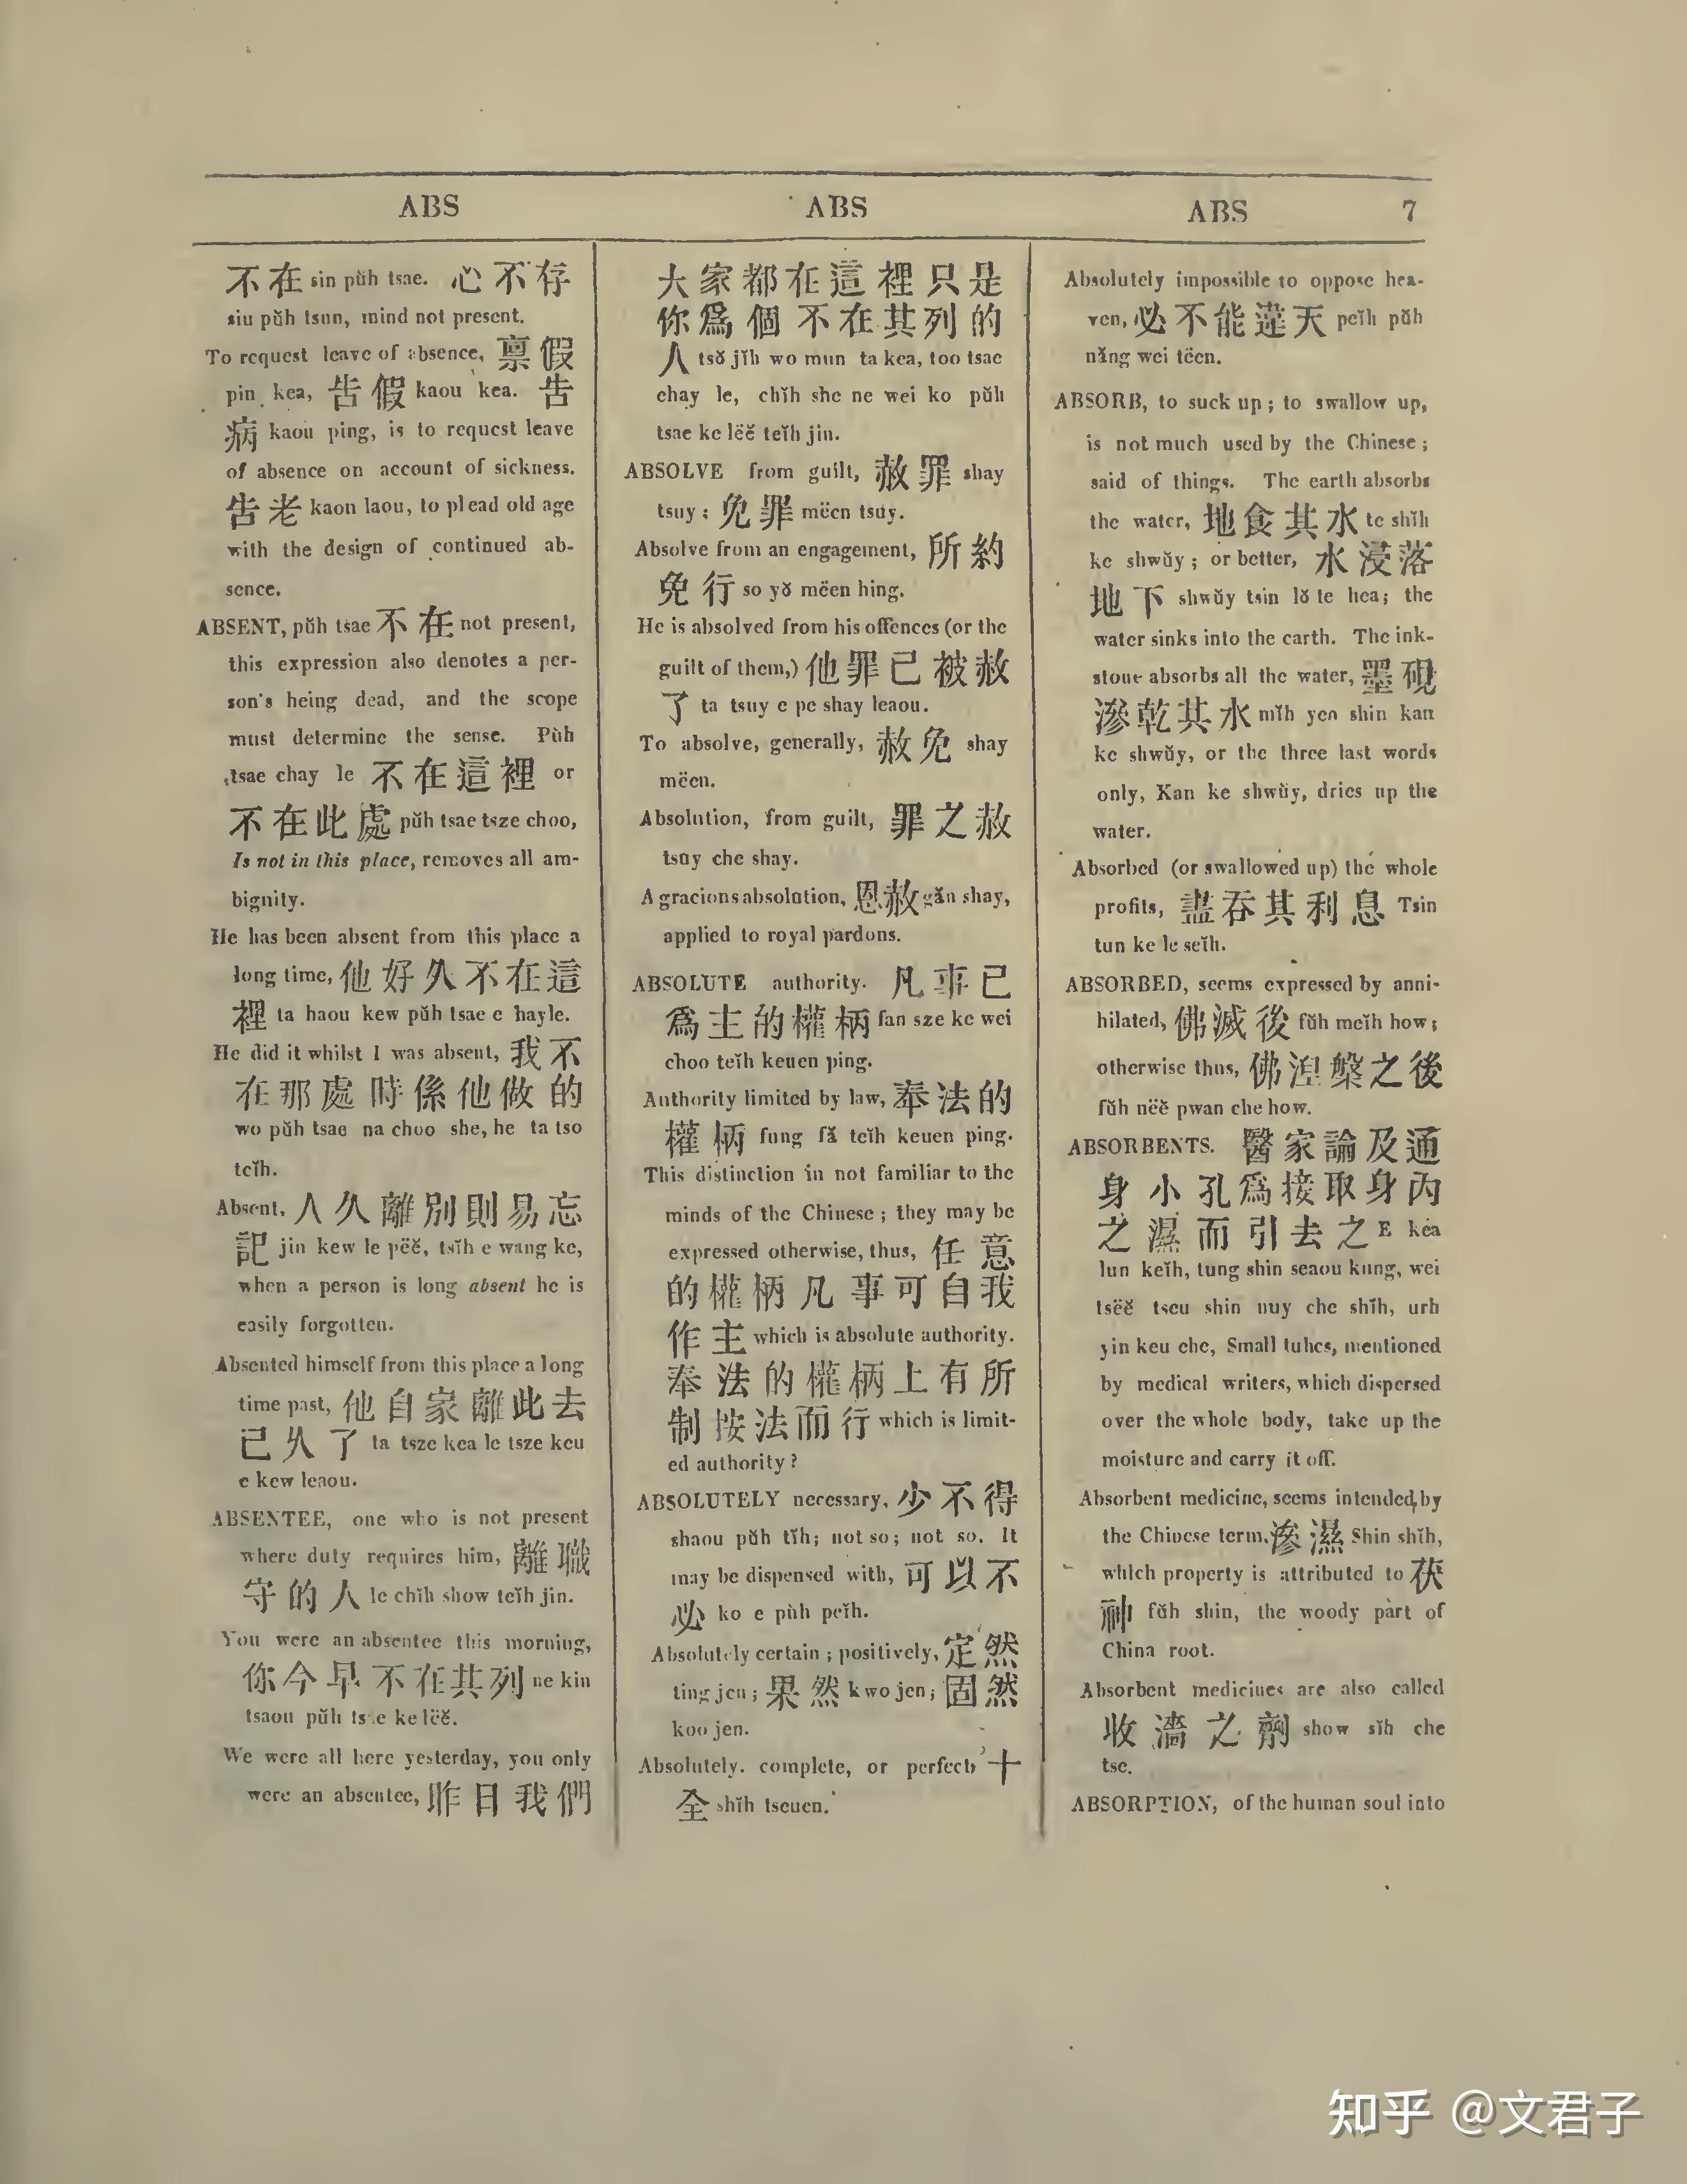 ABS
ABS
ABS 7
不在 sin pŭh tsae. 心不存
siu pŭh tsun, mind not present.
To request leave of absence, 禀假
pin kea, 告假 kaou kea. 告
病 kaou ping, is to request leave
of absence on account of sickness.
告老 kaou laou, to plead old age
with the design of continued ab-
sence.
ABSENT, pŭh tsae 不在 not present,
this expression also denotes a per-
son's being dead, and the scope
must determine the sense. Pŭh
tsae chay le 不在這裡 or
不在此處 pŭh tsae tsze choo,
Is not in this place, removes all am-
bignity.
He has been absent from this place a
long time, 他好久不在這
裡 ta haou kew pŭh tsae c hayle.
He did it whilst I was absent, 我不
在那處時係他做的
wo pŭh tsae na choo she, he ta tso
teĭh.
Absent, 人久離別則易忘
記 jin kew le pëĕ, tsĭh e wang ke,
when a person is long absent he is
easily forgotten.
Absented himself from this place a long
time past, 他自家離此去
已久了 ta tsze kea le tsze keu
e kew leaou.
ABSENTEE, one who is not present
where duty requires him, 離職
守的人 le chĭh show teĭh jin.
You were an absentee this morning,
你今早不在其列 ne kin
tsaou pŭh ts e ke lëĕ.
We were all here yesterday, you only
were an absentee, 昨日我們
大家都在這裡只是
你爲個不在其列的
人 tsŏ jĭh wo mun ta kea, too tsae
chay le, chĭh she ne wei ko pŭh
tsae ke lëĕ teĭh jin.
ABSOLVE from guilt, 赦罪 shay
tsuy; 免罪 mëen tsuy.
Absolve from an engagement, 所約
免行 so yŏ mëen hing.
He is absolved from his offences (or the
guilt of them,) 他罪已被赦
了 ta tsuy e pe shay leaou.
To absolve, generally, 赦免 shay
mëen.
Absolution, from guilt, 罪之赦
tsuy che shay.
A gracions absolution, 恩赦 găn shay,
applied to royal pardons.
ABSOLUTE authority. 凡事已
爲主的權柄 fan sze ke wei
choo teĭh keuen ping.
Authority limited by law, 奉法的
權柄 fung fă teĭh keuen ping.
This distinction in not familiar to the
minds of the Chinese; they may be
expressed otherwise, thus, 任意
的權柄凡事可自我
作主 which is absolute authority.
奉法的權柄上有所
制按法而行 which is limit-
ed authority?
ABSOLUTELY necessary, 少不得
shaou pŭh tĭh; not so; not so. It
may be dispensed with, 可以不
必 ko e pŭh peĭh.
Absolutely certain; positively, 定然
ting jen; 果然 kwo jen; 固然
koo jen.
Absolutely. complete, or perfect, 十
全 shĭh tseuen.
Absolutely impossible to oppose hea-
ven, 必不能違天 peĭh pŭh
năng wei tëen.
ABSORB, to suck up; to swallow up,
is not much used by the Chinese;
said of things. The earth absorbs
the water, 地食其水 te shĭh
ke shwŭy; or better, 水浸落
地下 shwŭy tsin lŏ te hea; the
water sinks into the earth. The ink-
stone absorbs all the water, 墨硯
滲乾其水 mĭh yen shin kan
ke shwŭy, or the three last words
only, Kan ke shwŭy, dries up the
water.
Absorbed (or swallowed up) the whole
profits, 盡吞其利息 Tsin
tun ke le seĭh.
ABSORBED, seems expressed by anni-
hilated, 佛滅後 fŭh meĭh how;
otherwise thus, 佛涅槃之後
fŭh nëĕ pwan che how.
ABSORBENTS. 醫家論及通
身小孔爲接取身內
之濕而引去之 E kea
lun keĭh, tung shin seaou kung, wei
tsëĕ tseu shin nuy che shĭh, urh
yin keu che, Small tubes, mentioned
by medical writers, which dispersed
over the whole body, take up the
moisture and carry it off.
Absorbent medicine, seems intended, by
the Chinese term, 滲濕 Shin shĭh,
which property is attributed to 茯
神 fŭh shin, the woody part of
China root.
Absorbent medicines are also called
收濇之劑 show sĭh che
tse.
ABSORPTION, of the human soul into
知乎 @文君子